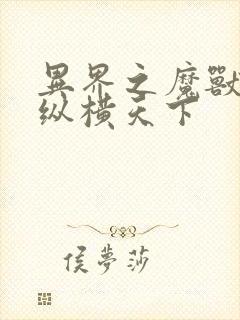 異界之魔獸
纵横天下
侯夢莎